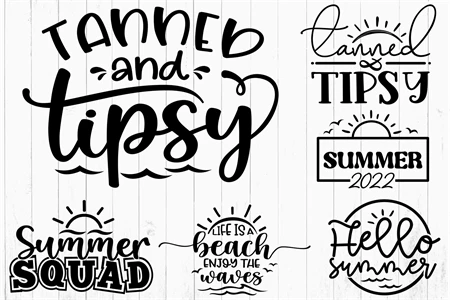 TANNED
and
tipsy
tanned
&
TIPSY
SUMMER
2022
Summer
SQUAD
LIFE IS A
beach
ENJOY THE
waves
Hello
summer